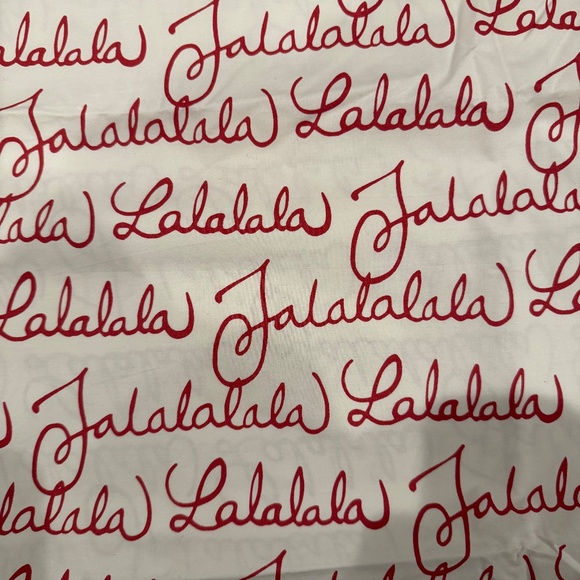 alalala Falalalala Lala
Falalalala Lalalala F
lala Lalalala Falalala
Lalalala Falalalala La
Falalalala Lalalala
lalala Lalalala Falala